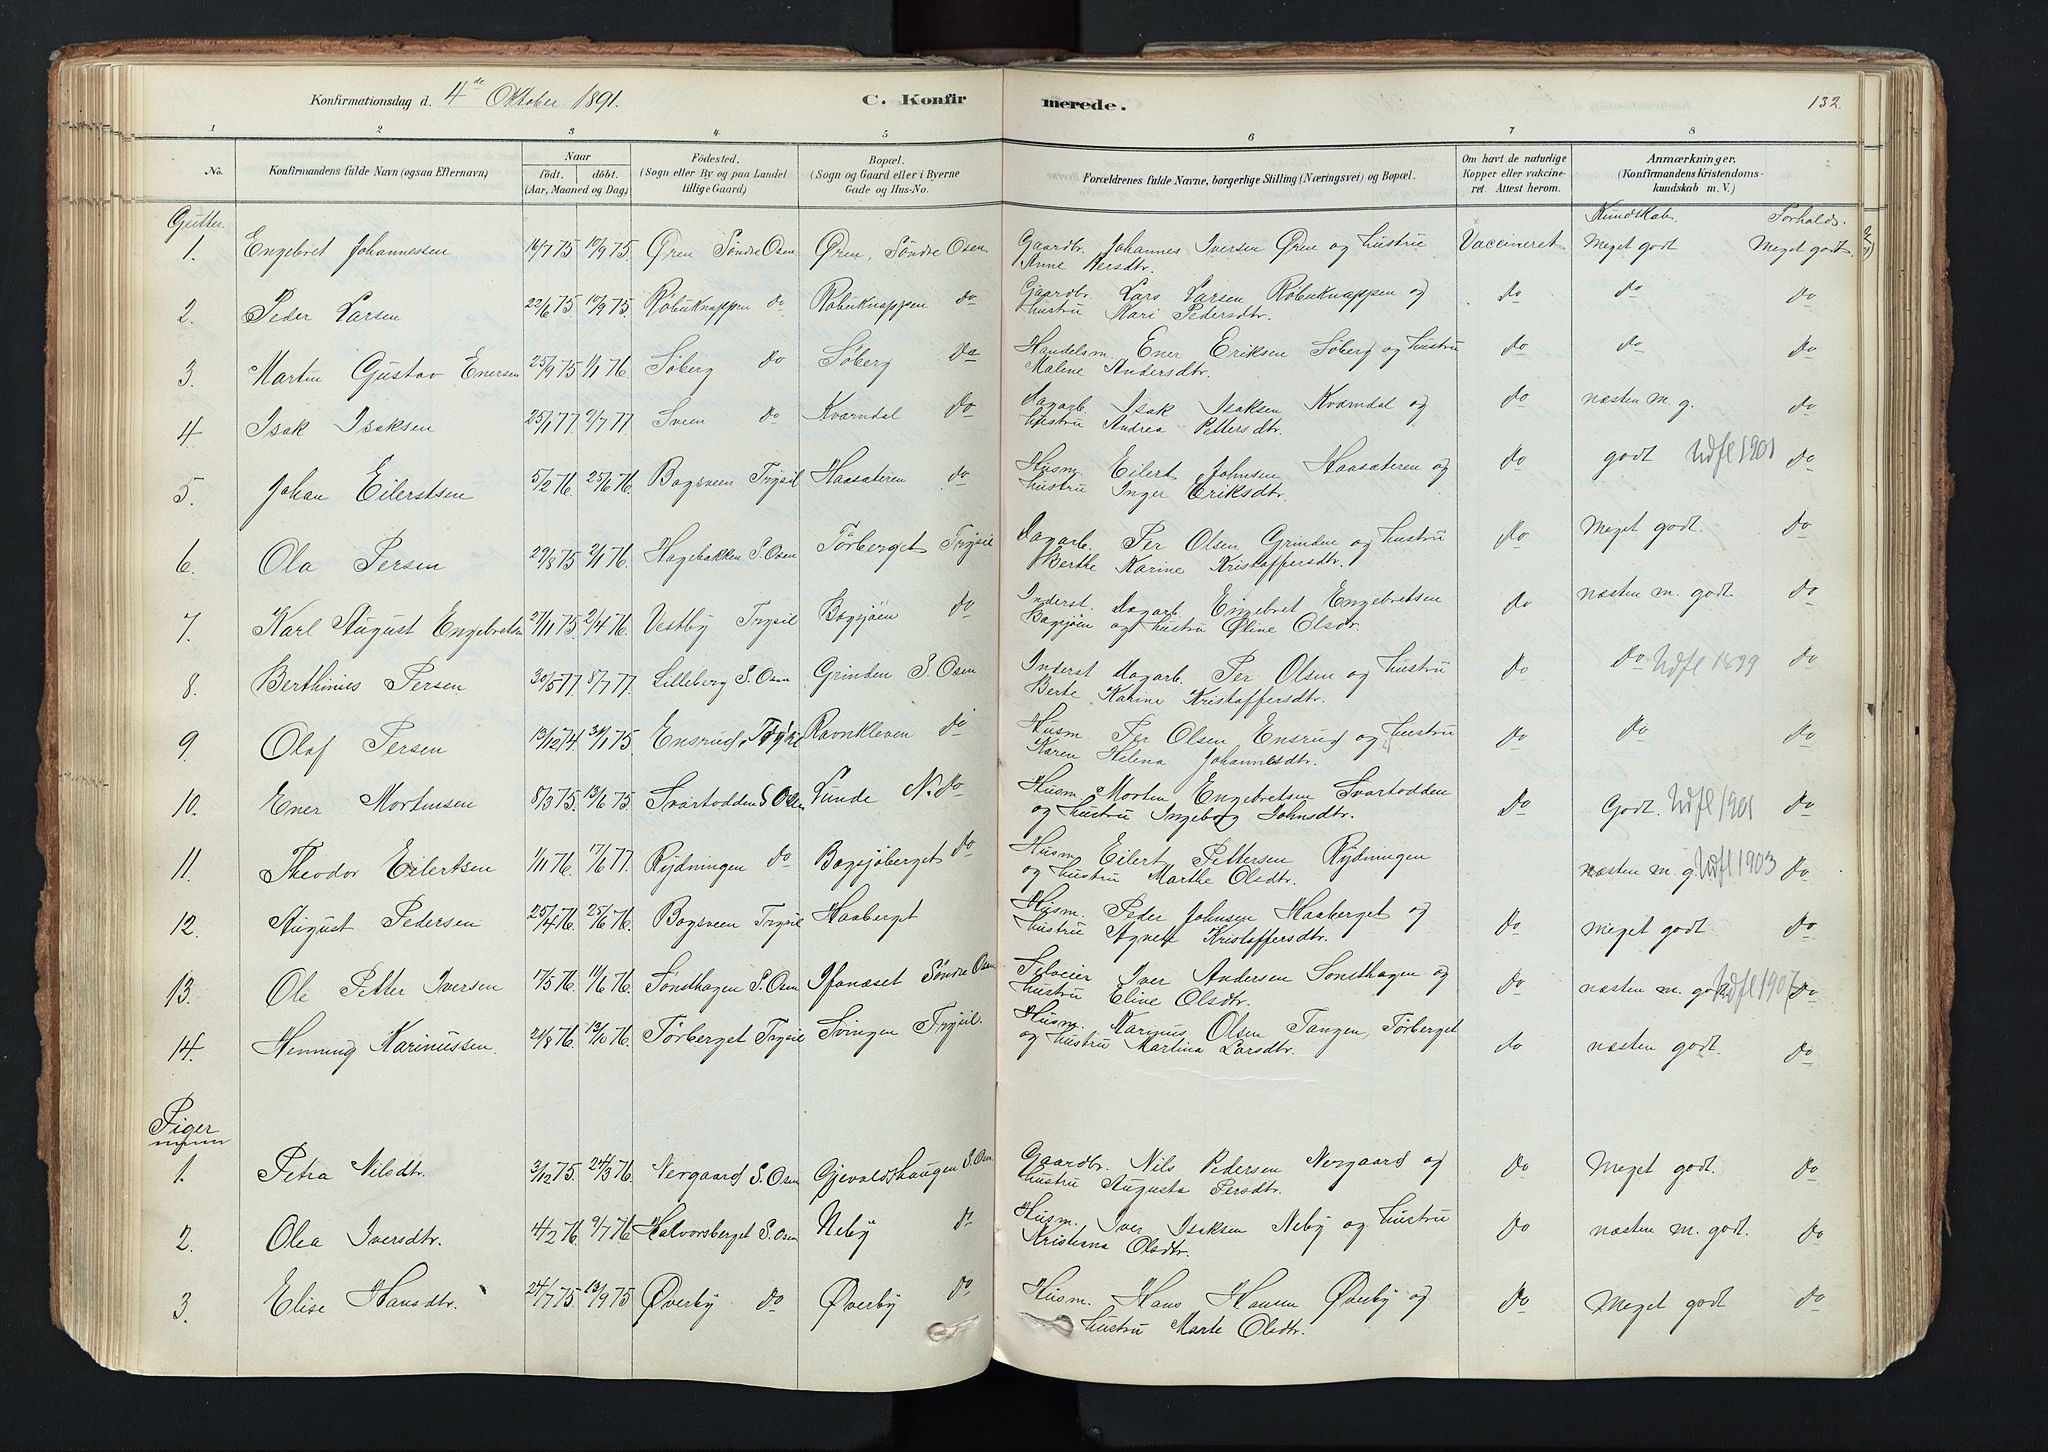 Konfirmationsdag d. 4de Oktober 1891. C. Konfirmerede. 132.
1 2 3 4 5 6 7 8
No. Konfirmandens fulde Navn (ogsaa Efternavn) Naar født. døbt. (Aar, Maaned og Dag) Fødested. (Sogn eller By og paa Landet tillige Gaard.) Bopæl. (Sogn og Gaard eller i Byerne Gade og Hus-No. Forældrenes fulde Navne, borgerlige Stilling (Næringsvei) og Bopæl. Om havt de naturlige Kopper eller vakcineret. Attest herom. Anmærkninger. (Konfirmandens Kristendomskundskab m. V.)
Gutter. Kundskab. Forhold.
1. Engebret Johannessen 16/7 75 17/9 75. Øren Søndre Osen Øren, Søndre Osen. Gaardbr. Johannes Iversen Øren og hustru Vaccineret Meget godt Meget godt.
Anne Persdtr.
2. Peder Larsen 22/6 75 17/9 75. Røbuknappen do Røbuknappen do Gaardbr. Lars Larsen Røbuknappen og do do do
hustru Kari Pedersdtr.
3. Martin Gustav Enersen 25/9 75 1/1 76. Søberg do Søberg do Handelsm. Ener Eriksen Søberg og hustru do do do
Malene Andersdtr.
4 Isak Isaksen 25/1 77. 2/7 77. Sveen do Kværndal do Dagarb. Isak Isaksen Kværndal og do næsten m. g. do
hustru Andrea Pettersdtr.
5. Johan Eilerstsen 5/2 76. 25/6 76. Bagsveen Trysil Haasæteren do Husm. Eilert Johnsen Haasæteren og do godt Udfl 1901 do
hustru Inger Eriksdtr.
6. Ola Persen 29/8 75 2/1 76. Hagebakken S. Osen Tørberget Trysil Dagarb. Per Olsen Grinden og hustru do Meget godt. do
Berthe Karine Kristoffersdtr.
7. Karl August Engebretsen 27/11 75. 2/4 76. Vestby Trysil Bagsjøen do Inderst. Dagarb. Engebret Engebretsen do næsten m. godt. do
Bagsjøen og hustru Øline Olsdr.
8. Berthinius Persen 30/5 77. 8/7 77. Lilleberg S. Osen Grinden S. Osen Inderst Dagarb. Per Olsen og hustru do do Udfl 1899 do
Berte Karine Kristoffersdtr.
9. Olaf Persen 13/12 74 31/1 75. Ensrud, Trysil Ravnkleven do Husm. Per Olsen Ensrud og hustru do do do
Karen Helena Johannesdtr.
10. Ener Mortensen 8/3 75. 13/6 75. Svartodden S Osen Lunde N. do Husm. Morten Engebretsen Svartodden do Godt. Udfl 1901 do
og hustru Ingeborg Johnsdtr.
11. Theodor Eilertsen 1/11 76. 17/6 77. Rydningen do Bagsjøberget do Husm. Eilert Pettersen Rydningen næsten m. g. Udfl 1903 do
og hustru Marthe Olsdtr.
12. August Pedersen 25/4 76. 25/6 76. Bagsveen Trysil Haaberget Husm. Peder Johnsen Haaberget og do meget godt do
hustru Agnete Kristoffersdtr.
13. Ole Petter Iversen 17/5 76. 11/6 76. Sønsthagen S. Osen Ifanæset Søndre Osen Selveier Iver Andersen Sønsthagen og do næsten m. godt Udfl 1907 do
hustru Eline Olsdtr.
14. Henning Karinussen 21/8 76. 13/10 76. Tørberget Trysil Svingen Trysil. Husm. Karinus Olsen Tangen, Tørberget do næsten godt. do
og hustru Martina Larsdtr.
Piger
1. Petra Nilsdtr. 3/12 75. 24/3 76. Nergaard S. Osen Gjevaldshaugen S. Osen Gaardbr. Nils Pedersen Nergaard og do Meget godt. do
hustru Augusta Persdtr.
2. Olea Iversdtr. 4/2 76. 9/7 76. Halvorsberget S. Osen Neby do Husm. Iver Isaksen Neby og hustru do næsten m. godt. do
Kristiana Olsdtr.
3. Elise Hansdtr. 24/7 75. 13/9 75 Øverby do Øverby do Husm. Hans Hansen Øverby og do Meget godt do
hustru Marte Olsdtr.